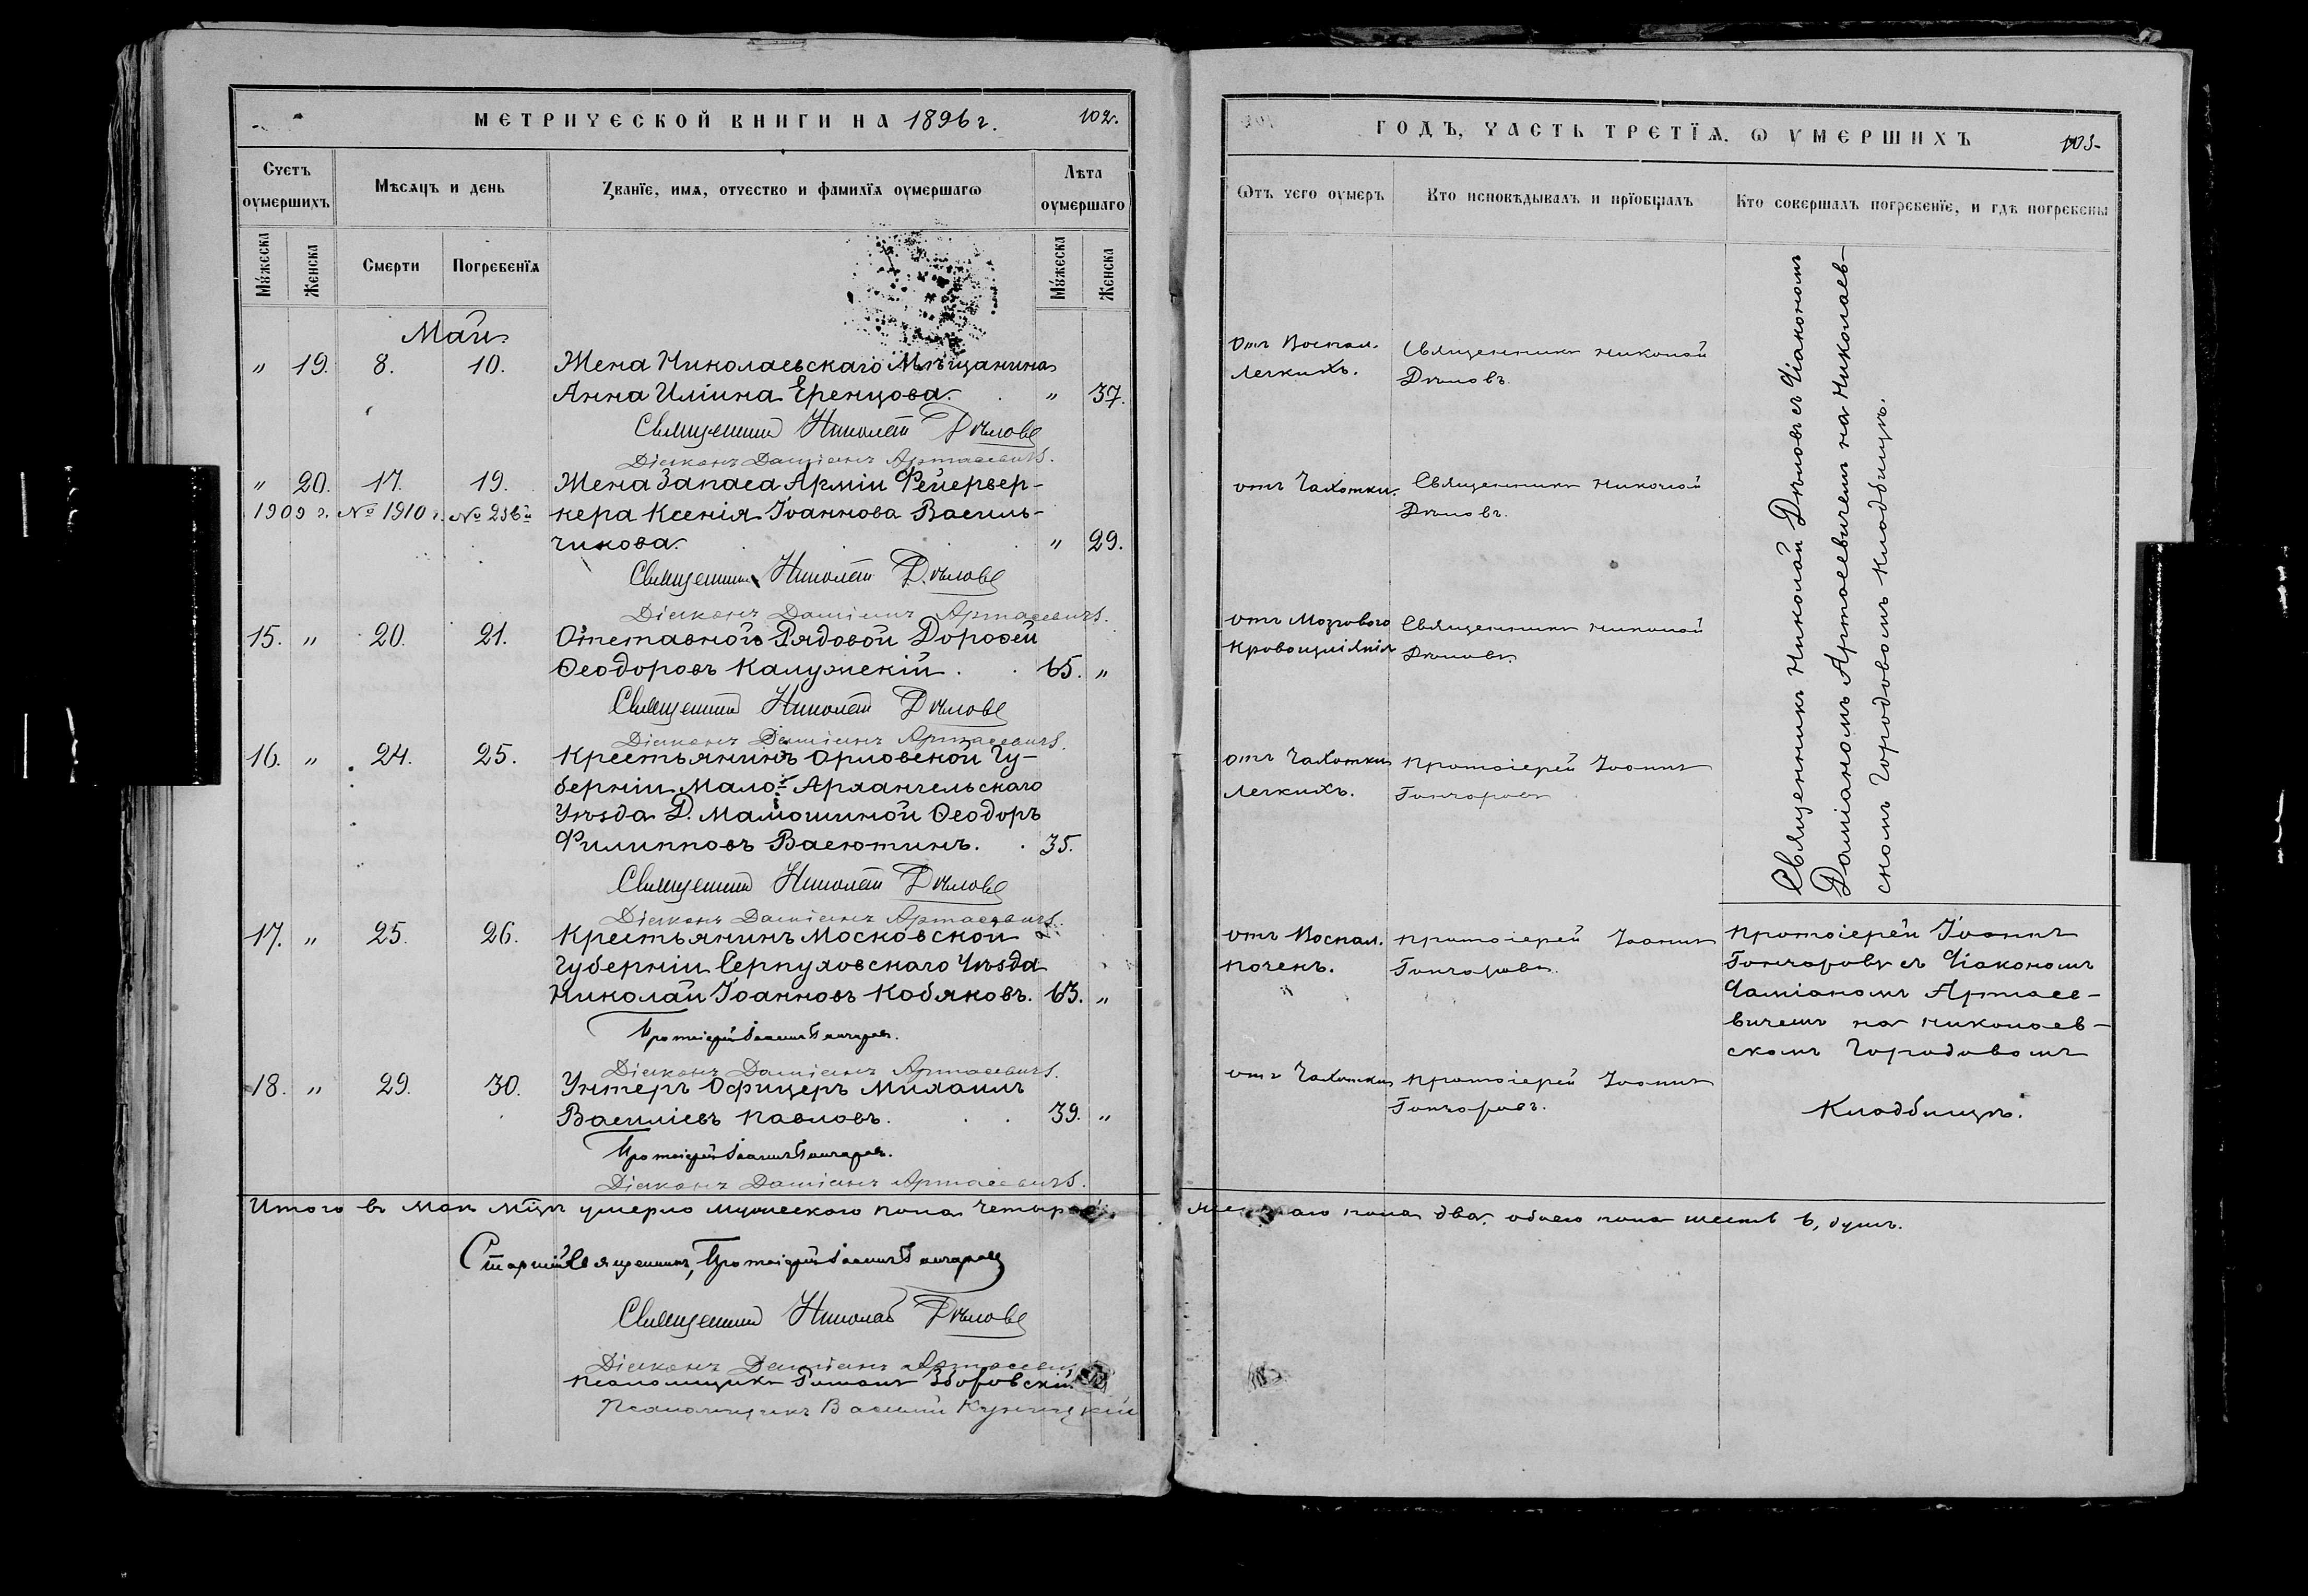 МЕТРИЧЕСКОЙ КНИГИ НА 1896 г.
102.
Счетъ оумершихъ
Мѣсяцъ и день
Званїе, имѧ, отчество и фамилїѧ оумершагѡ
Лѣта оумершаго
Мꙋжеска
Женска
Смерти
Погребенїѧ
Мꙋжеска
Женска
Май
" 19. 8. 10. Жена Николаевскаго Мѣщанина
Анна Иліина Еренцова. " 37.
Священникъ Николай Дѣловъ
Діаконъ Даміанъ Артасевичъ.
" 20. 17. 19. Жена Запаса Арміи Фейервер-
1909 г. № 1910 г. № 256й кера Ксенія Іоаннова Василь-
чикова. " 29.
Священникъ Николай Дѣловъ
Діаконъ Даміанъ Артасевичъ.
15. " 20. 21. Отставной Рядовой Дороѳей
Ѳеодоровъ Калужскій. 65. "
Священникъ Николай Дѣловъ
Діаконъ Даміанъ Артасевичъ.
16. " 24. 25. Крестьянинъ Орловской Гу-
берніи Мало-Архангельскаго
Уѣзда Д. Мамошиной Ѳеодоръ
Филипповъ Васютинъ. 35.
Священникъ Николай Дѣловъ
Діаконъ Даміанъ Артасевичъ.
17. " 25. 26. Крестьянинъ Московской
Губерніи Серпуховскаго Уѣзда
Николай Іоанновъ Кобяковъ. 63. "
Протоіерей Іоаннъ Гончаровъ.
Діаконъ Даміанъ Артасевичъ.
18. " 29. 30. Унтеръ Офицеръ Михаилъ
Василіевъ Павловъ. 39. "
Протоіерей Іоаннъ Гончаровъ.
Діаконъ Даміанъ Артасевичъ.
Итого въ Маѣ мѣцѣ умерло мужескаго пола четыре,
Старшій Священникъ, Протоіерей Іоаннъ Гончаровъ
Священникъ Николай Дѣловъ
Діаконъ Даміанъ Артасевичъ
Псаломщикъ Романъ Зборовскій
Псаломщикъ Василій Куницкій
ГОДЪ, ЧАСТЬ ТРЕТЇѦ. Ѡ ѸМЕРШИХЪ
103.
Ѿъ чего оумеръ
Кто исповѣдывалъ и прїобщалъ
Кто совершалъ погребенїе, и гдѣ погребены
Отъ Воспал.
Легкихъ.
Священникъ Николай
Дѣловъ.
отъ Чахотки.
Священникъ Николай
Дѣловъ.
отъ Мозгового
Кровоизліянія
Священникъ Николай
Дѣловъ.
отъ Чахотки
Легкихъ.
Протоіерей Іоаннъ
Гончаровъ
Священникъ Николай Дѣловъ съ Діакономъ
Даміаномъ Артасевичемъ на Николаев-
скомъ Городовомъ Кладбищѣ.
отъ Воспал.
почекъ.
Протоіерей Іоаннъ
Гончаровъ.
отъ Чахотки
Протоіерей Іоаннъ
Гончаровъ.
Протоіерей Іоаннъ
Гончаровъ съ Діакономъ
Даміаномъ Артасе-
вичемъ на Николаев-
скомъ Городовомъ
Кладбищѣ.
женскаго пола два, обоего пола шесть 6, душъ.